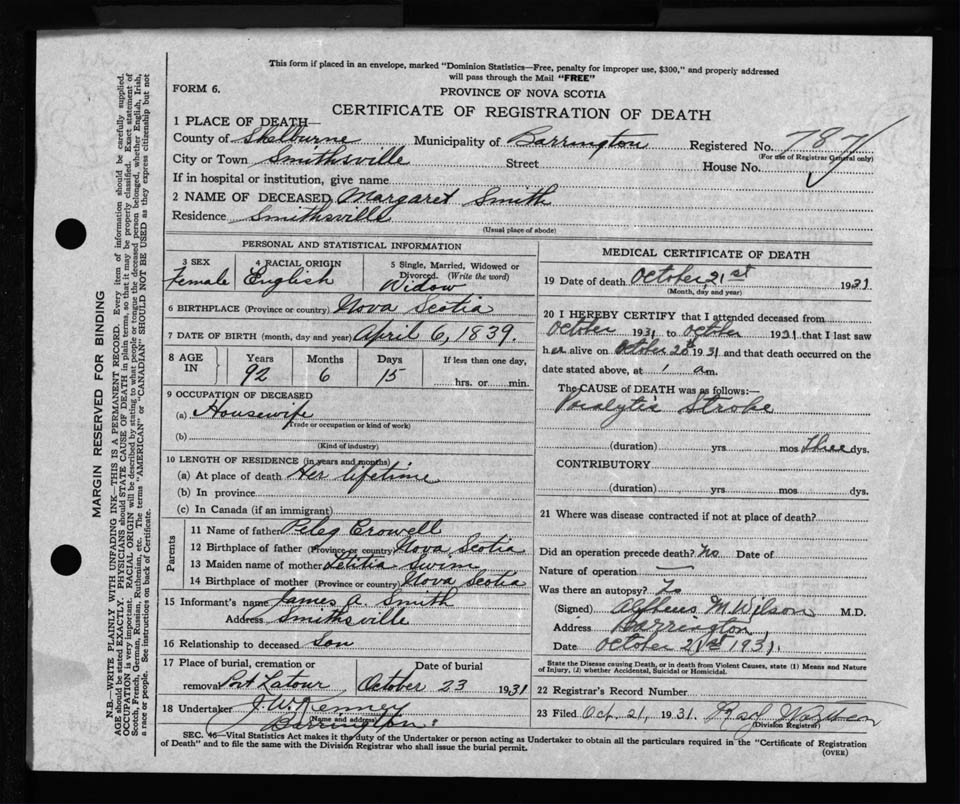 This form if placed in an envelope, marked "Dominion Statistics—Free, penalty for improper use, $300," and properly addressed
will pass through the Mail "FREE"
FORM 6.
PROVINCE OF NOVA SCOTIA
CERTIFICATE OF REGISTRATION OF DEATH
1 PLACE OF DEATH—
County of Shelburne Municipality of Barrington Registered No. 787
(For use of Registrar General only)
City or Town Smithsville Street House No.
If in hospital or institution, give name
2 NAME OF DECEASED Margaret Smith
Residence Smithsville
(Usual place of abode)
MARGIN RESERVED FOR BINDING
N.B.—WRITE PLAINLY WITH UNFADING INK—THIS IS A PERMANENT RECORD. Every item of information should be carefully supplied.
AGE should be stated EXACTLY. PHYSICIANS should STATE CAUSE OF DEATH in plain terms, so that it may be properly classified. Exact statement of
OCCUPATION is very important. RACIAL ORIGIN will be described by stating to what people or tongue the deceased person belonged, whether English, Irish,
Scotch, French, German, Russian, Ruthenian, etc. The terms "AMERICAN" or "CANADIAN" SHOULD NOT BE USED as they express citizenship but not
a race or people. See instructions on back of Certificate.
PERSONAL AND STATISTICAL INFORMATION
3 SEX
Female
4 RACIAL ORIGIN
English
5 Single, Married, Widowed or
Divorced. (Write the word)
Widow
6 BIRTHPLACE (Province or country) Nova Scotia
7 DATE OF BIRTH (month, day and year) April 6, 1839.
8 AGE IN
Years Months Days If less than one day,
92 6 15 hrs. or min.
9 OCCUPATION OF DECEASED
(a) Housewife
(Trade or occupation or kind of work)
(b)
(Kind of industry)
10 LENGTH OF RESIDENCE (in years and months)
(a) At place of death Her lifetime
(b) In province
(c) In Canada (if an immigrant)
Parents
11 Name of father Peleg Crowell
12 Birthplace of father (Province or country) Nova Scotia
13 Maiden name of mother Letitia Swim
14 Birthplace of mother (Province or country) Nova Scotia
15 Informant's name James A. Smith
Address Smithsville
16 Relationship to deceased Son
17 Place of burial, cremation or Date of burial
removal Port Latour October 23 1931
18 Undertaker J. W. Kenney
(Name and address)
Barrington
MEDICAL CERTIFICATE OF DEATH
19 Date of death October, 21st 1931
(Month, day and year)
20 I HEREBY CERTIFY that I attended deceased from
October 1931 to October 1931 that I last saw
her alive on October 20th 1931 and that death occurred on the
date stated above, at 1 a.m.
The CAUSE of DEATH was as follows:—
Paralytic Stroke
(duration) yrs mos three dys.
CONTRIBUTORY
(duration) yrs mos dys.
21 Where was disease contracted if not at place of death?
Did an operation precede death? No Date of
Nature of operation —
Was there an autopsy?
(Signed) Alpheus M. Wilson M.D.
Address Barrington
Date October 21st 1931.
State the Disease causing Death, or in death from Violent Causes, state (1) Means and Nature
of Injury, (2) whether Accidental, Suicidal or Homicidal.
22 Registrar's Record Number
23 Filed Oct. 21, 1931.
(Division Registrar)
SEC. 46—Vital Statistics Act makes it the duty of the Undertaker or person acting as Undertaker to obtain all the particulars required in the "Certificate of Registration
of Death" and to file the same with the Division Registrar who shall issue the burial permit.
(OVER)